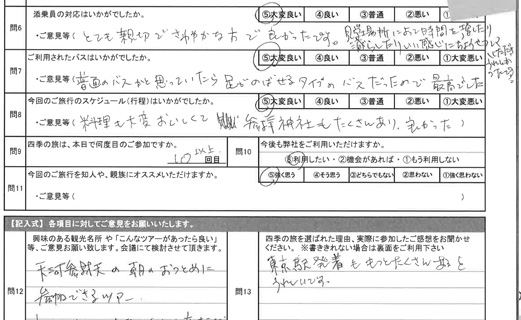 問6 添乗員の対応はいかがでしたか。 ⑤大変良い ④良い ③普通 ②悪い ①大変悪い
・ご意見等( とても親切でさわやかな方で良かったです。 見学場所において時間を
問7 ご利用されたバスはいかがでしたか。 ⑤大変良い ④良い ③普通 ②悪い ①大変悪い
・ご意見等( 普通のバスかと思っていたら足をのばせるタイプのバスだったので最高でした
問8 今回のご旅行のスケジュール(行程)はいかがでしたか。 ⑤大変良い ④良い ③普通 ②悪い ①大変悪い
・ご意見等( 料理も大変おいしくて 神社もたくさんあり、良かった )
問9 四季の旅は、本日で何度目のご参加ですか。 10以上 回目
問10 今後も弊社をご利用いただけますか。
③利用したい・②機会があれば・①もう利用しない
問11 今回のご旅行を知人や、親族にオススメいただけますか。 ⑤強く思う ④そう思う ③どちらでもない ②思わない ①強く思わない
・ご意見等( )
【記入式】各項目に対してご意見をお願いいたします。
問12 興味のある観光名所 や「こんなツアーがあったら良い」
等、ご意見お願い致します。会議にて検討させて頂きます。
天河弁財天の朝のおつとめに
参加できるツアー
問13 四季の旅を選ばれた理由、実際に参加したご感想をお聞かせ
ください。 ※書ききれない場合は裏面をご利用下さい
東京駅発着ももっとたくさんあると
うれしいです。